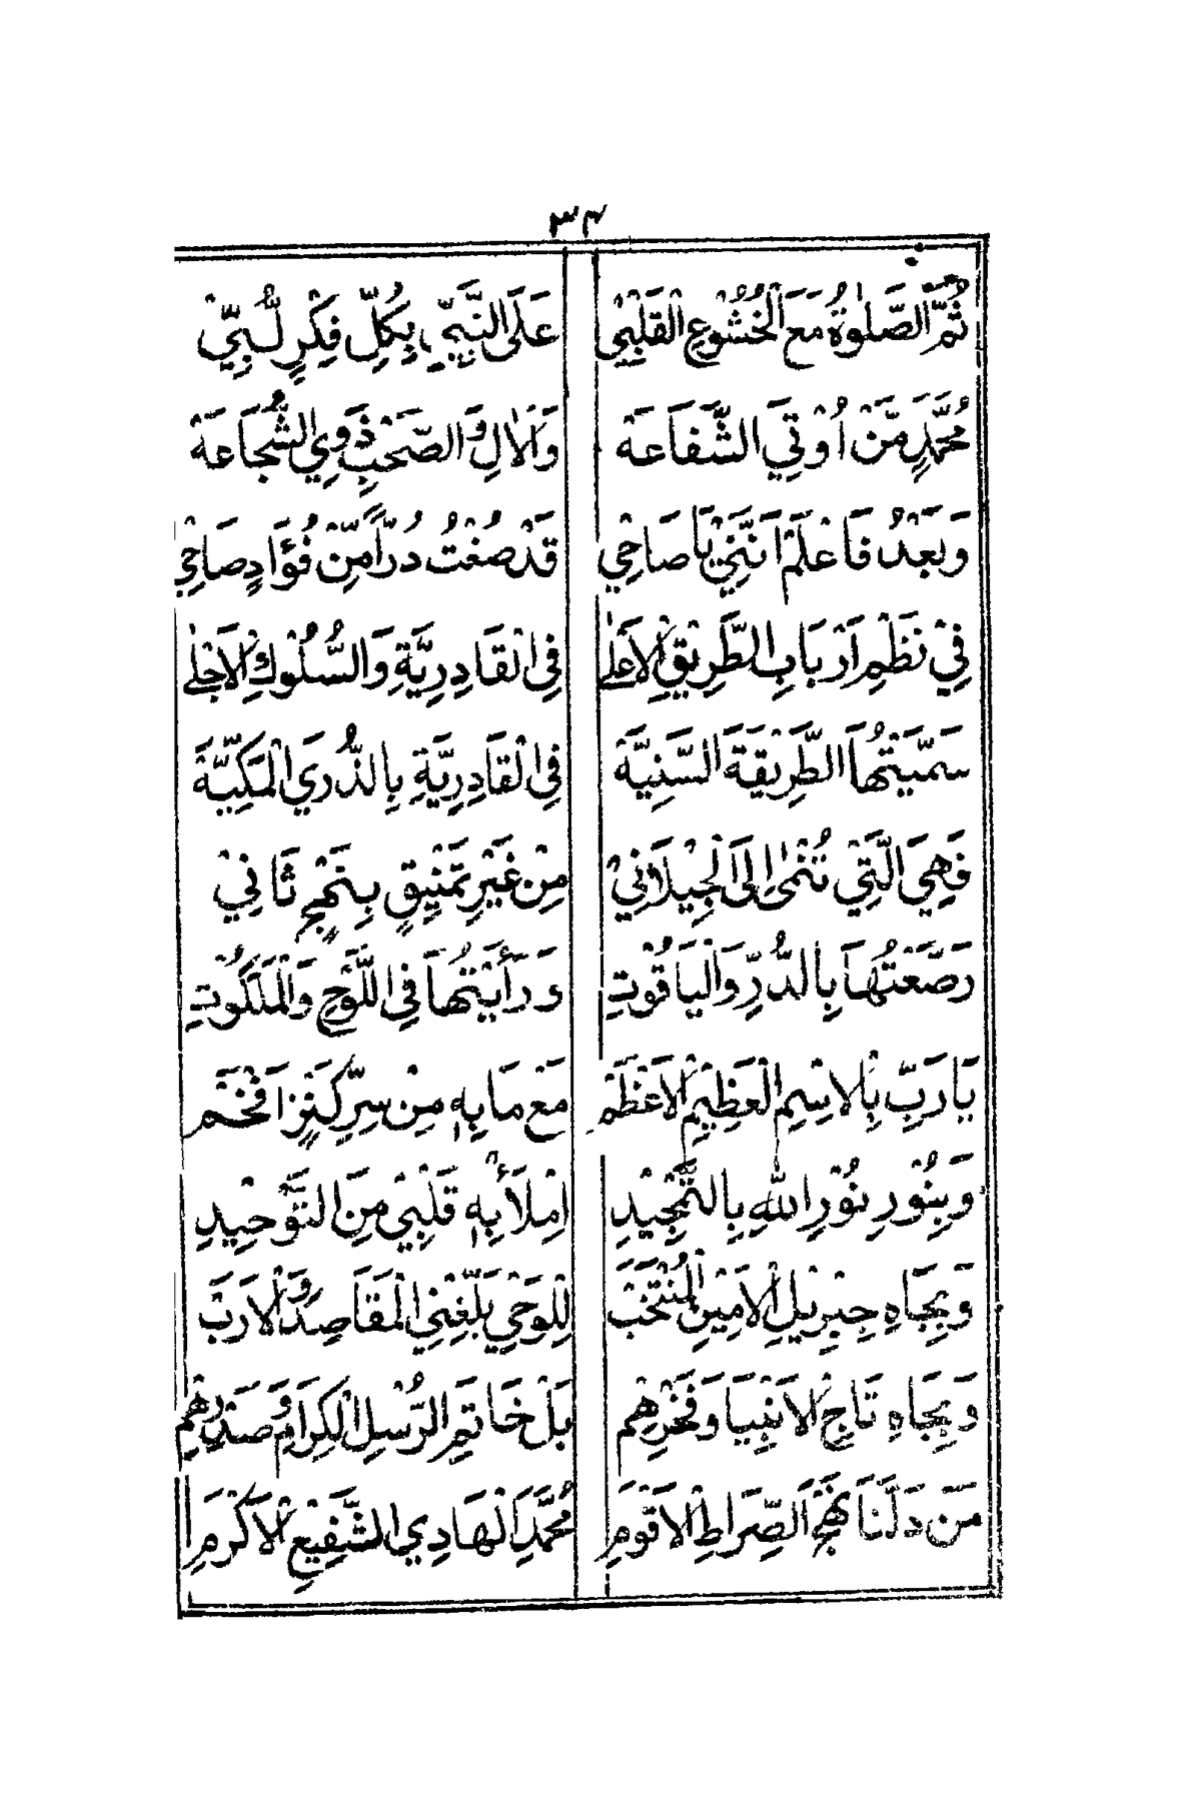 ٣٤
ثُمَّ الصَّلٰوةُ مَعَ الْخُشُوْعِ الْقَلْبِيْ عَلَى النَّبِيِّ بِكُلِّ فِكْرٍ لُبِّيْ
مُحَمَّدٍ مَّنْ اُوْتِيَ الشَّفَاعَةَ وَالْاٰلِ وَالصَّحْبِ ذَوِي الشُّجَاعَةَ
وَبَعْدُ فَاعْلَمْ اَنَّنِيْ يَا صَاحِيْ قَدْ صُغْتُ دُرًّا مِّنْ فُؤَادٍ صَاحِيْ
فِيْ نَظْمِ اَرْبَابِ الطَّرِيْقِ الْاَعْلٰى فِي الْقَادِرِيَّةِ وَالسُّلُوْكِ الْاَجْلٰى
سَمَّيْتُهَا الطَّرِيْقَةَ السَّنِيَّةَ فِي الْقَادِرِيَّةِ بِالدُّرَيِ الْمَكِّيَّةَ
فَهِيَ الَّتِيْ تُنْمٰى اِلَى الْجِيْلَانِيْ مِنْ غَيْرِ تَمْنِيْقٍ بِنَهْجٍ ثَانِيْ
رَصَّعْتُهَا بِالدُّرِّ وَالْيَاقُوْتِ وَرَأَيْتُهَا فِي اللَّوْحِ وَالْمَلَكُوْتِ
يَا رَبِّ بِالْاِسْمِ الْعَظِيْمِ الْاَعْظَمْ مَعْ مَا بِهٖ مِنْ سِرِّ كَنْزٍ اَفْخَمْ
وَبِنُوْرِ نُوْرِ اللهِ بِالتَّمْجِيْدِ اِمْلَأْ بِهٖ قَلْبِيْ مِنَ التَّوْحِيْدِ
وَبِجَاهِ جِبْرِيْلِ الْاَمِيْنِ الْمُنْتَخَبْ لِلْوَحْيِ بَلِّغْنِي الْمَقَاصِدَ وَالْاَرَبْ
وَبِجَاهِ تَاجِ الْاَنْبِيَا وَفَخْرِهِمْ بَلْ خَاتَمِ الرُّسْلِ الْكِرَامِ وَصَدْرِهِمْ
مَنْ دَلَّنَا نَهْجَ الصِّرَاطِ الْاَقْوَمِ مُحَمَّدِ الْهَادِي الشَّفِيْعِ الْاَكْرَمِ